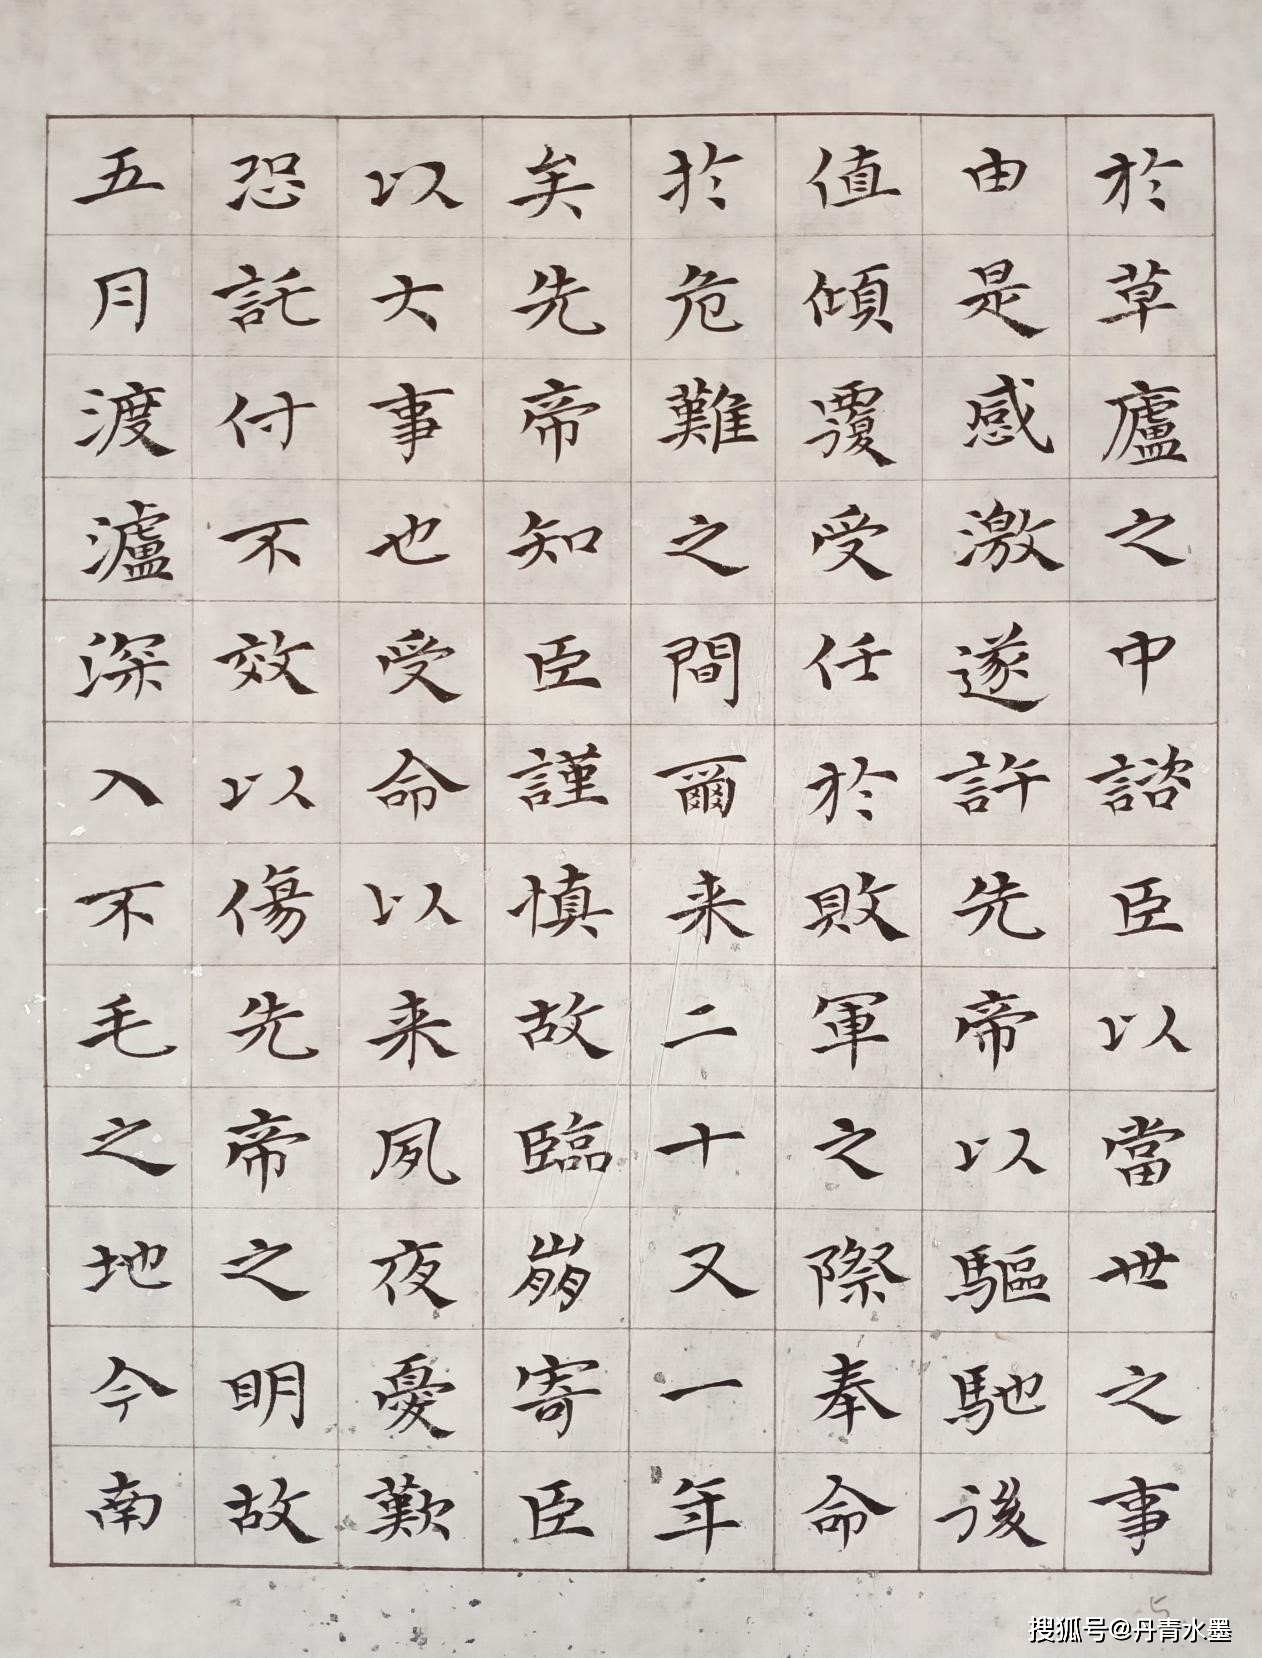 於草廬之中諮臣以當世之事
由是感激遂許先帝以驅馳後
值傾覆受任於敗軍之際奉命
於危難之間爾来二十又一年
矣先帝知臣謹慎故臨崩寄臣
以大事也受命以来夙夜憂歎
恐託付不效以傷先帝之明故
五月渡瀘深入不毛之地今南
5
搜狐号@丹青水墨